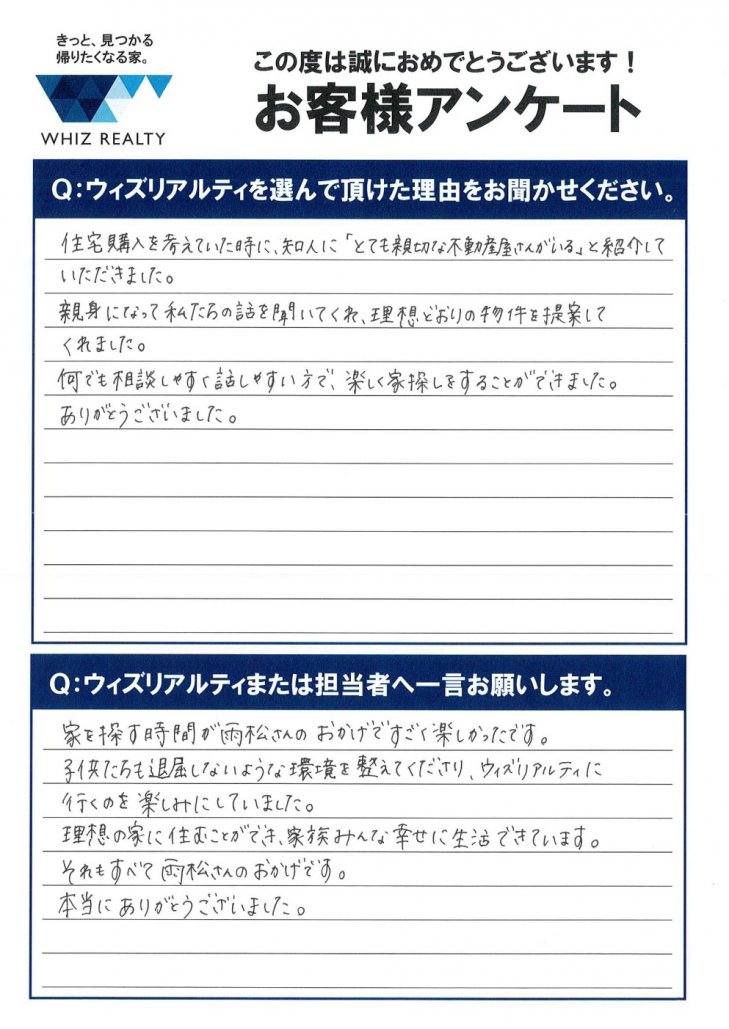 きっと、見つかる
帰りたくなる家。
WHIZ REALTY
この度は誠におめでとうございます！
お客様アンケート
Q：ウィズリアルティを選んで頂けた理由をお聞かせください。
住宅購入を考えていた時に、知人に「とても親切な不動産屋さんがいる」と紹介して
いただきました。
親身になって私たちの話を聞いてくれ、理想どおりの物件を提案して
くれました。
何でも相談しやすく話しやすい方で、楽しく家探しをすることができました。
ありがとうございました。
Q：ウィズリアルティまたは担当者へ一言お願いします。
家を探す時間が雨松さんのおかげですごく楽しかったです。
子供たちも退屈しないような環境を整えてくださり、ウィズリアルティに
行くのを楽しみにしていました。
理想の家に住むことができ、家族みんな幸せに生活できています。
それもすべて雨松さんのおかげです。
本当にありがとうございました。